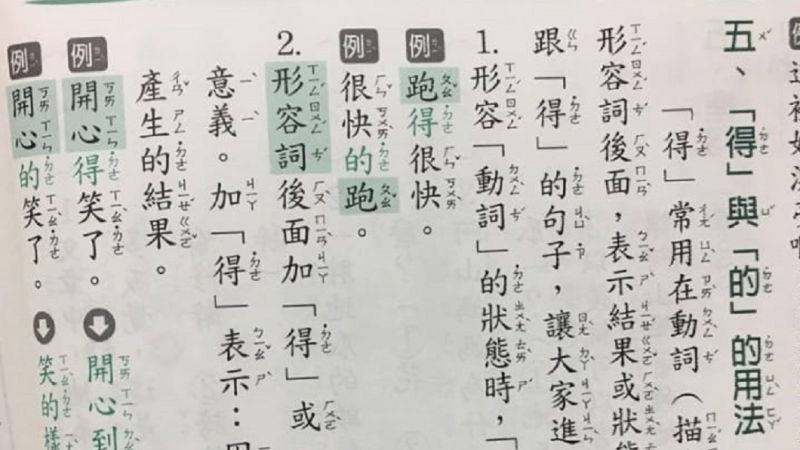 五、「得」與「的」的用法
「得」常用在動詞（描
形容詞後面，表示結果或狀態
跟「得」的句子，讓大家進
1. 形容「動詞」的狀態時，「
例 跑得很快。
例 很快的跑。
2. 形容詞後面加「得」或
意義。加「得」表示：因
產生的結果。
例 開心得笑了。 開心到
例 開心的笑了。 笑的樣